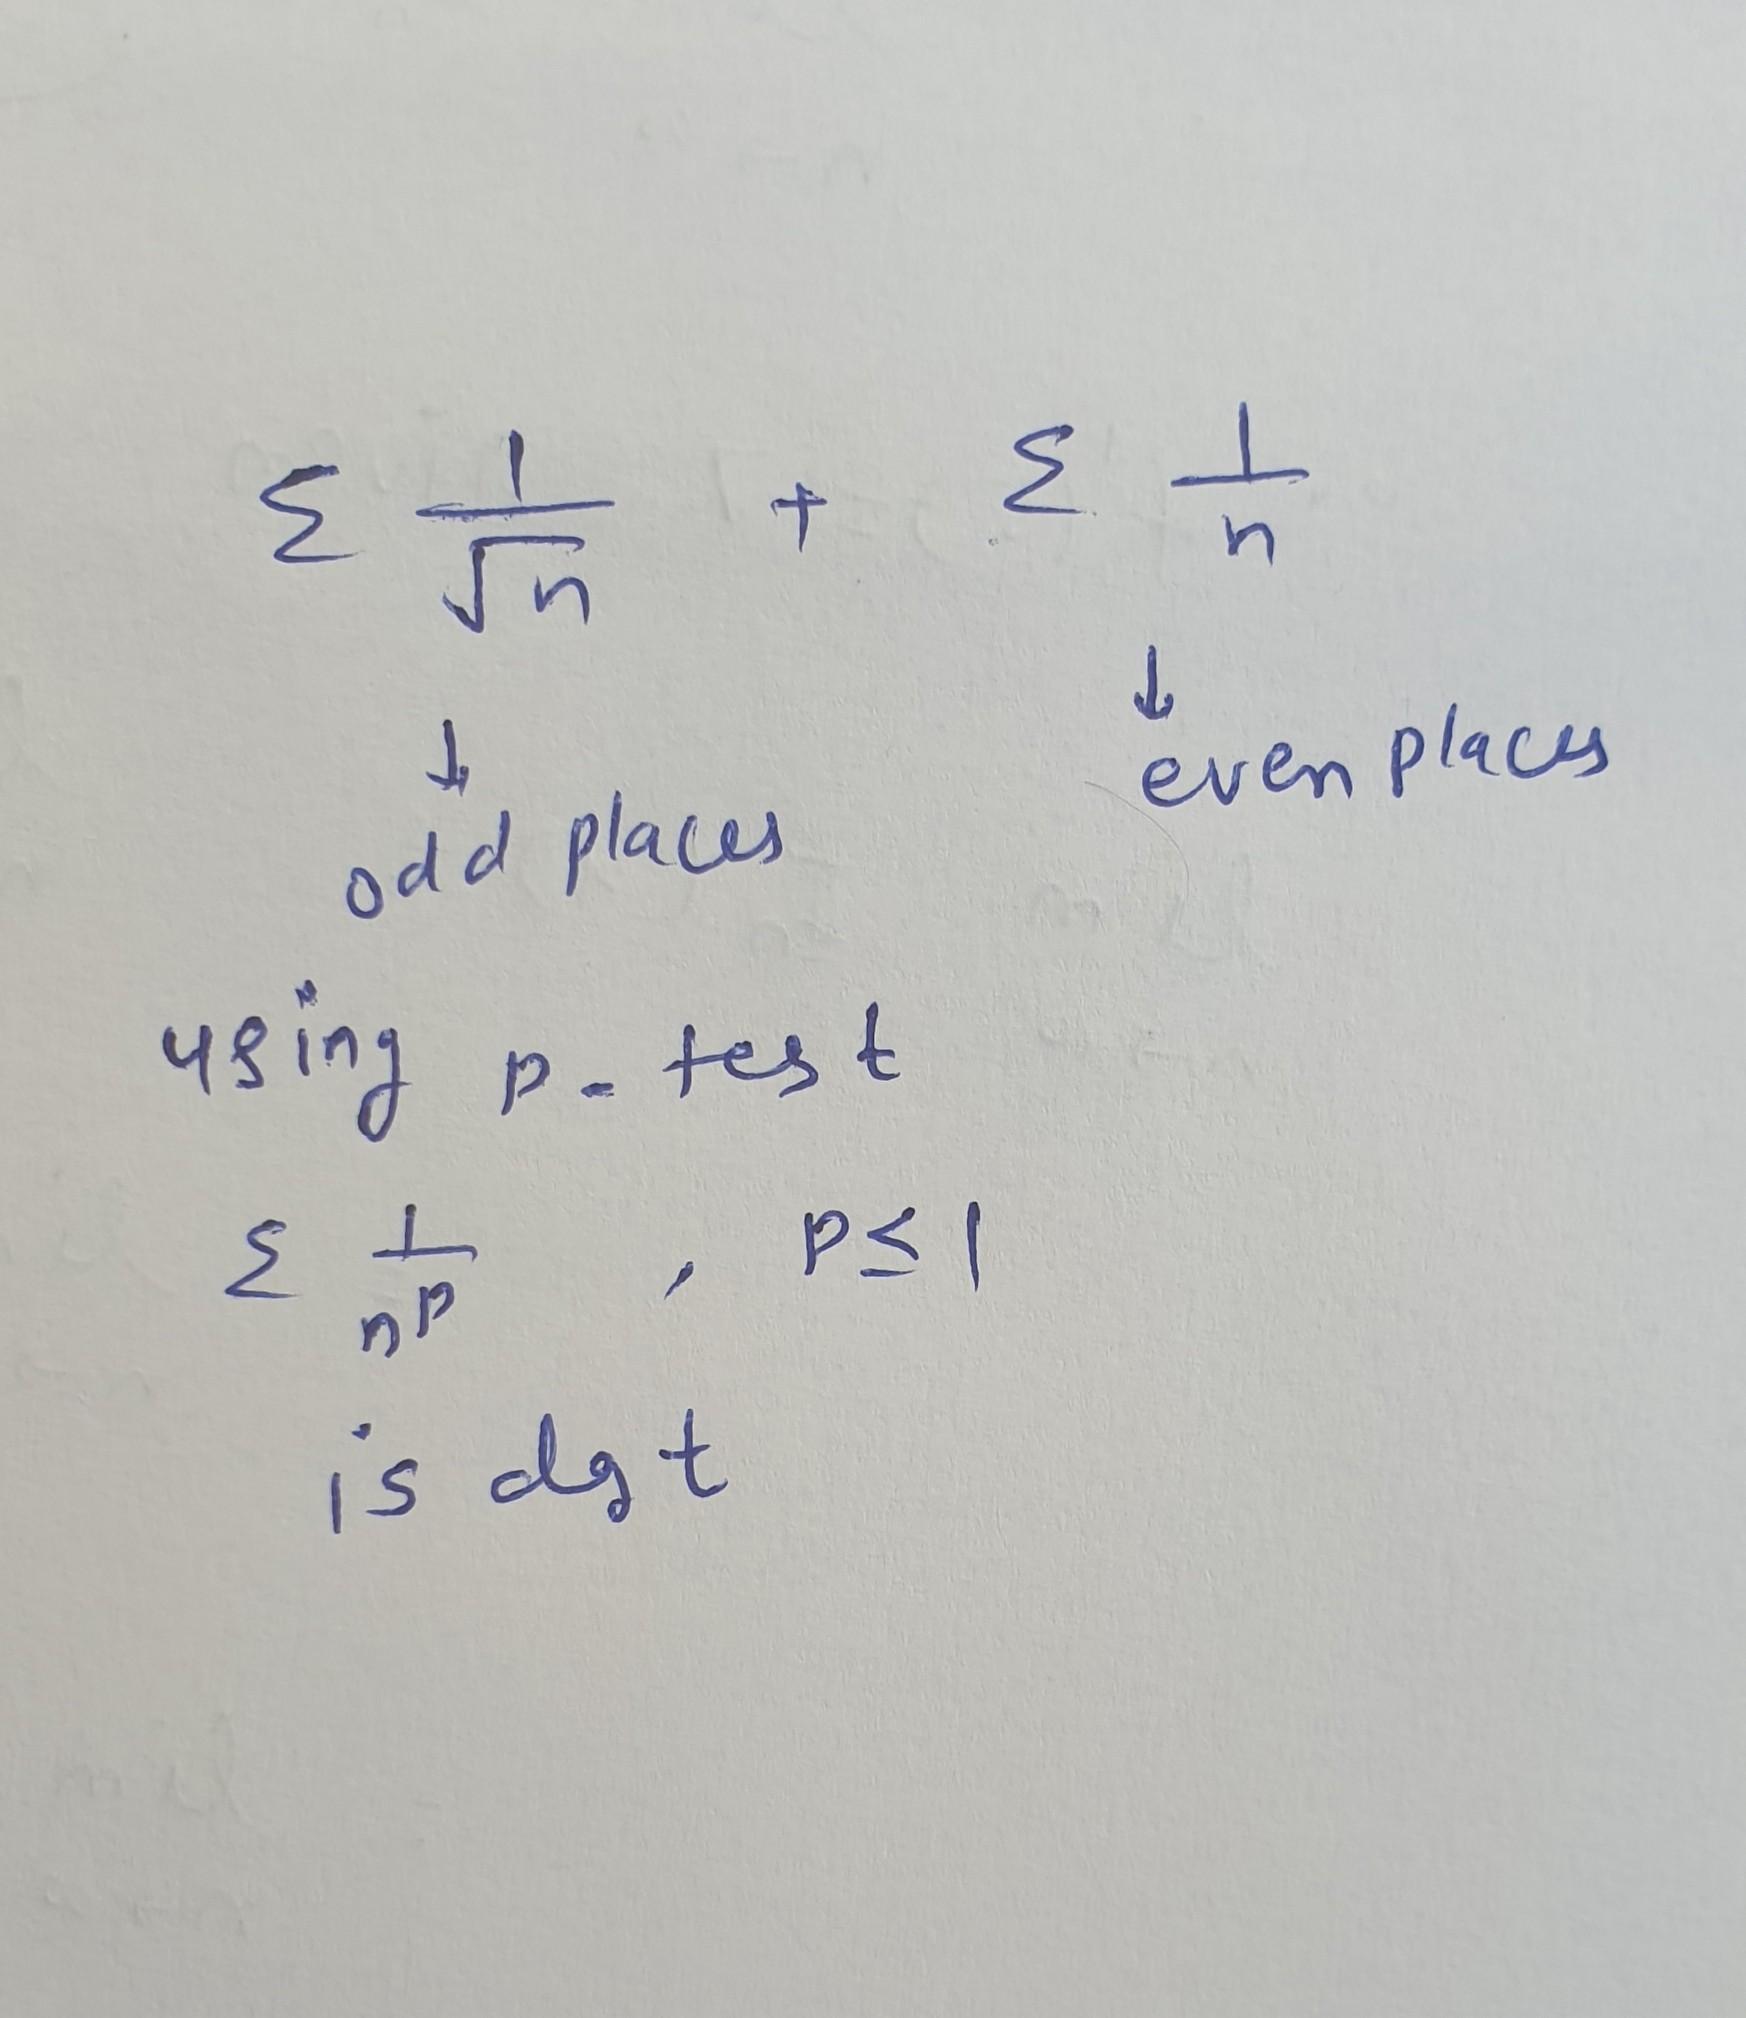 Σ 1/√n + Σ 1/n
↓ ↓
odd places even places
using p-test
Σ 1/n^p , p ≤ 1
is dgt